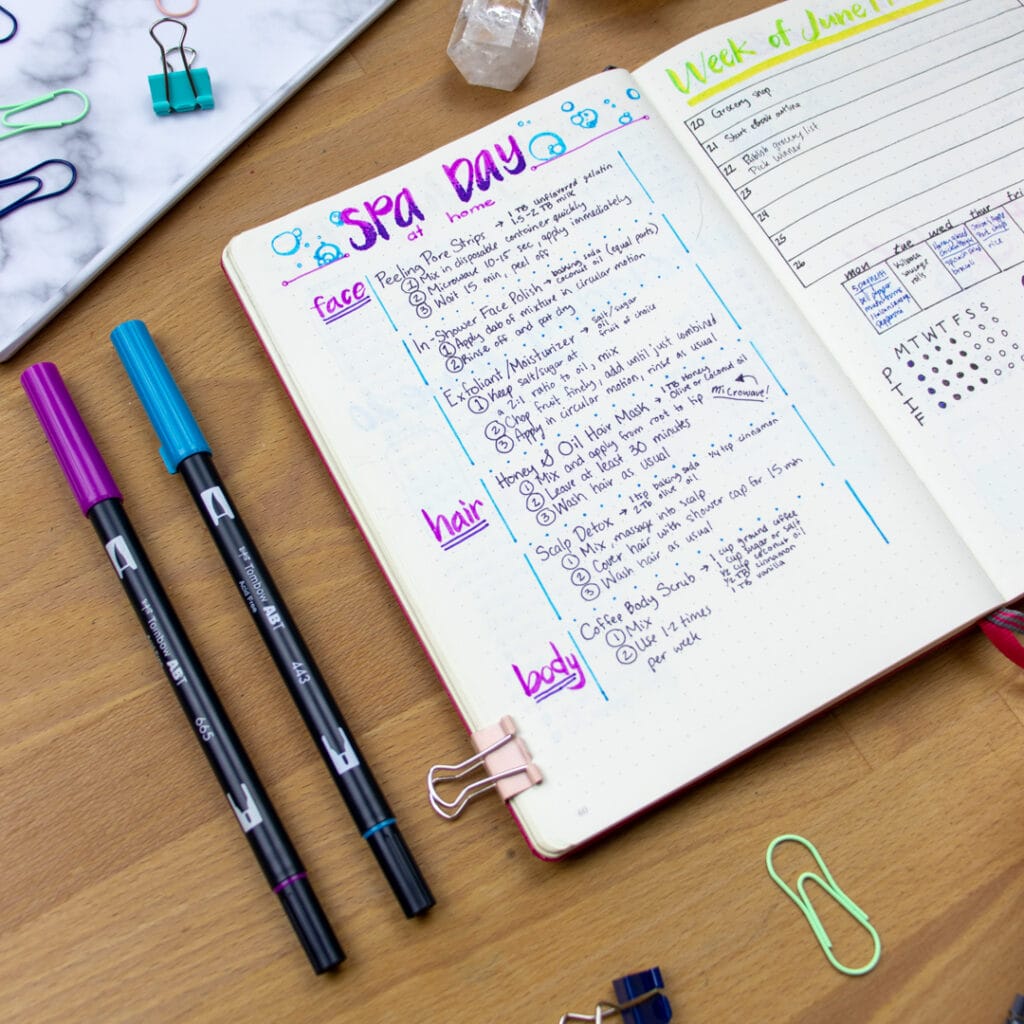 SPA DAY
at home
face
Peeling Pore Strips → 1 TB unflavored gelatin
1.5-2 TB milk
① Mix in disposable container quickly
② Microwave 10-15 sec, apply immediately
③ Wait 15 min, peel off
In-Shower Face Polish → baking soda
coconut oil (equal parts)
① Apply dab of mixture in circular motion
② Rinse off and pat dry
Exfoliant/Moisturizer → salt/sugar
oil
fruit of choice
① Keep salt/sugar at
a 2:1 ratio to oil, mix
② Chop fruit finely, add until just combined
③ Apply in circular motion, rinse as usual
hair
Honey & Oil Hair Mask → 1 TB Honey
Olive or Coconut oil
microwave!
① Mix and apply from root to tip
② Leave at least 30 minutes
③ Wash hair as usual
Scalp Detox → 1 tsp baking soda
2 TB olive oil
tsp cinnamon
① Mix, massage into scalp
② Cover hair with shower cap for 15 min
③ Wash hair as usual
body
Coffee Body Scrub → 1 cup ground coffee
1 cup sugar or salt
1/2 cup coconut oil
1/2 TB cinnamon
1 TB vanilla
① Mix
② Use 1-2 times
per week
60
Week of June
20 Grocery shop
21 Start eBook outline
22 Publish grocery list
Pick winner
23
24
25
26
mon tue wed thur fri
spaghetti
bell pepper
mushrooms
kielbasa
sausage
rolls
rice
M T W T F S S
P
I
H
F
Tombow ABT
665
Tombow ABT
Acid Free
443